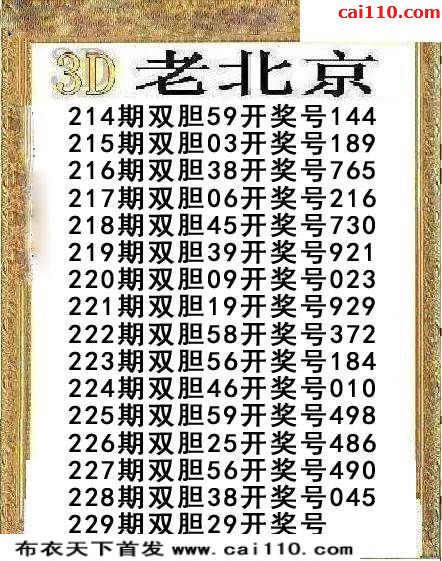 彩吧论坛
cai110.com
3D 老北京
214期双胆59开奖号144
215期双胆03开奖号189
216期双胆38开奖号765
217期双胆06开奖号216
218期双胆45开奖号730
219期双胆39开奖号921
220期双胆09开奖号023
221期双胆19开奖号929
222期双胆58开奖号372
223期双胆56开奖号184
224期双胆46开奖号010
225期双胆59开奖号498
226期双胆25开奖号486
227期双胆56开奖号490
228期双胆38开奖号045
229期双胆29开奖号
布衣天下首发 www.cai110.com